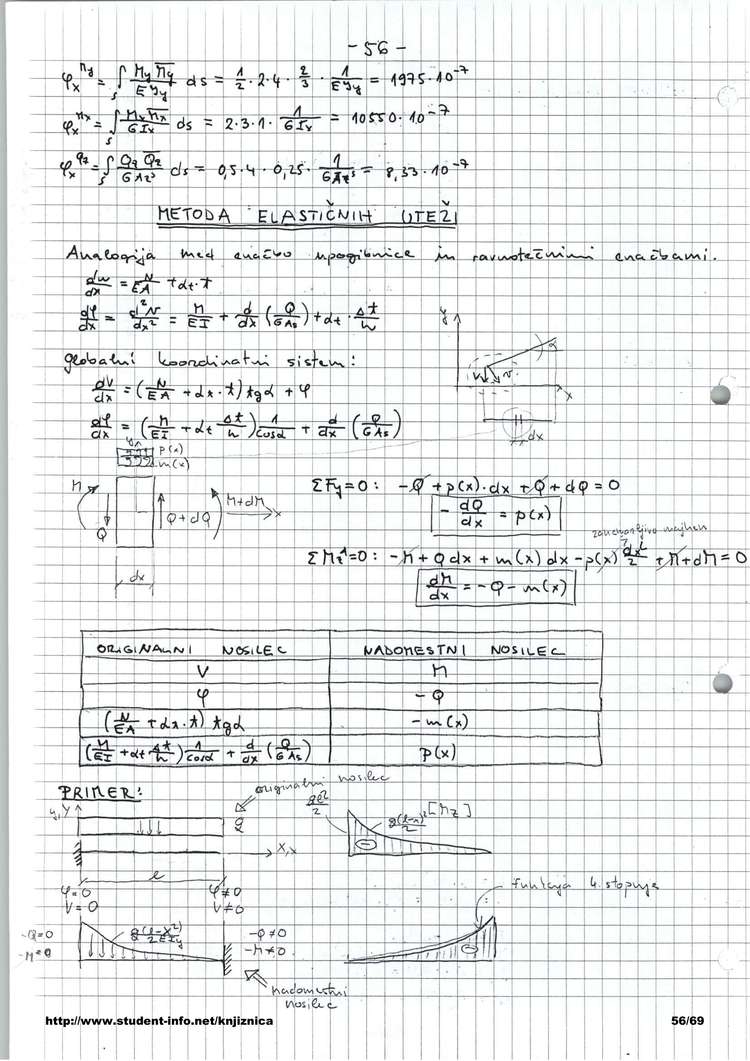 - 56 -
φx^My = ∫s My M̄y / EIy ds = 1/2 · 2 · 4 · 2/3 · 1/EIy = 1975 · 10^-7
φx^Mx = ∫s Mx M̄x / GIx ds = 2 · 3 · 1 · 1/GIx = 10550 · 10^-7
φx^Qz = ∫s Qz Q̄z / GAz^s ds = 0,5 · 4 · 0,25 · 1/GAz^s = 8,33 · 10^-7
METODA ELASTIČNIH UTEŽI
Analogija med enačbo upogibnice in ravnotežnimi enačbami.
du/dx = N/EA + αt · t
dφ/dx = d²v/dx² = M/EI + d/dx (Q/GAs) + αt · Δt/h
y
α
u v
x
globalni koordinatni sistem:
dV/dx = (N/EA + αt · t) tgα + φ
dφ/dx = (M/EI + αt Δt/h) 1/cosα + d/dx (Q/GAs)
dx
p(x)
m(x)
M
Q
Q+dQ
M+dM
x
dx
ΣFy = 0: -Q + p(x) · dx + Q + dQ = 0
- dQ/dx = p(x)
zanemarljivo majhen
ΣMz^A = 0: -M + Q dx + m(x) dx - p(x) dx²/2 + M + dM = 0
dM/dx = -Q - m(x)
ORIGINALNI NOSILEC NADOMESTNI NOSILEC
V M
φ -Q
(N/EA + αt · t) tgα -m(x)
(M/EI + αt Δt/h) 1/cosα + d/dx (Q/GAs) p(x)
PRIMER:
originalni nosilec
y,Y
q
X,x
ql²/2
q(l-x)²/2
[Mz]
-
l
φ=0 φ≠0
V=0 V≠0
funkcija 4. stopnje
-Q=0
-M=0
q(l-x²)/2EIy
-Q≠0
-M≠0
-
nadomestni
nosilec
http://www.student-info.net/knjiznica 56/69